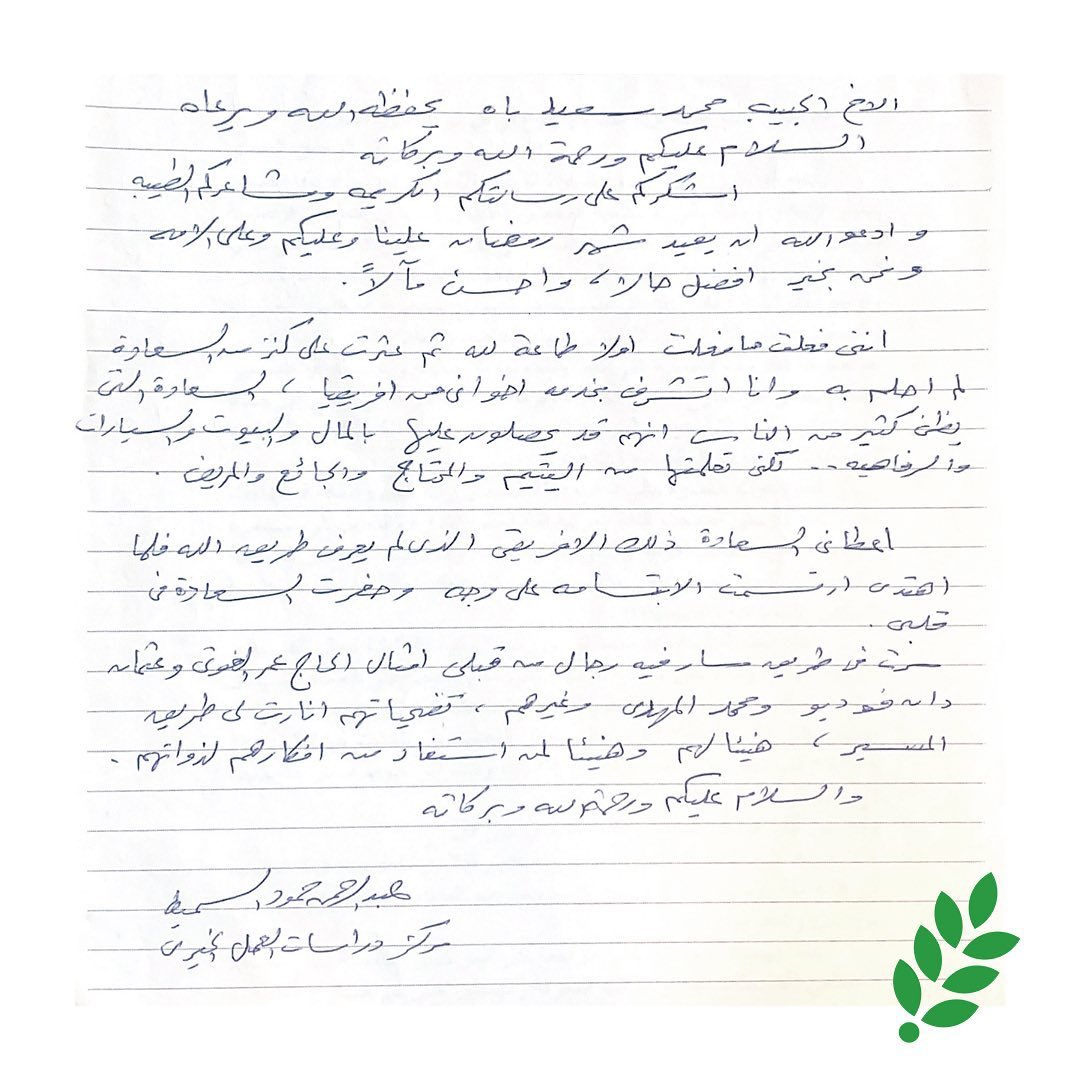 الاخ الحبيب محمد سعيد باه يحفظه الله ويرعاه
السلام عليكم ورحمة الله وبركاته
اشكركم على رسالتكم الكريمه ومشاعركم الطيبه
و ادعو الله ان يعيد شهر رمضان علينا وعليكم وعلى الامه
ونحن بخير افضل حالا، واحسن مآلاً.
انني فعلت ما فعلت اولا طاعة لله ثم عثرت على كنز من السعادة
لم احلم به وانا اتشرف بخدمه اخواني من افريقيا، السعادة التي
يظن كثير من الناس انهم قد يحصلون عليها بالمال والبيوت والسيارات
والرفاهيه.. لكني تعلمتها من اليتيم والمحتاج والجائع والمريض.
اعطاني السعادة ذلك الافريقي الذي لم يعرف طريق الله فلما
اهتدى ارتسمت الابتسامه على وجه وحفرت السعادة في
قلبي.
سرت في طريق سار فيه رجال من قبلي امثال الحاج عمر الفوتي وعثمان
دان فوديو ومحمد المهدي وغيرهم، تضحياتهم انارت لي طريق
المسير، هنيئا لهم وهنيئا لمن استفاد من افكارهم لذواتهم.
والسلام عليكم ورحمة الله وبركاته
عبد الرحمن حمود السميط
مركز دراسات العمل الخيري